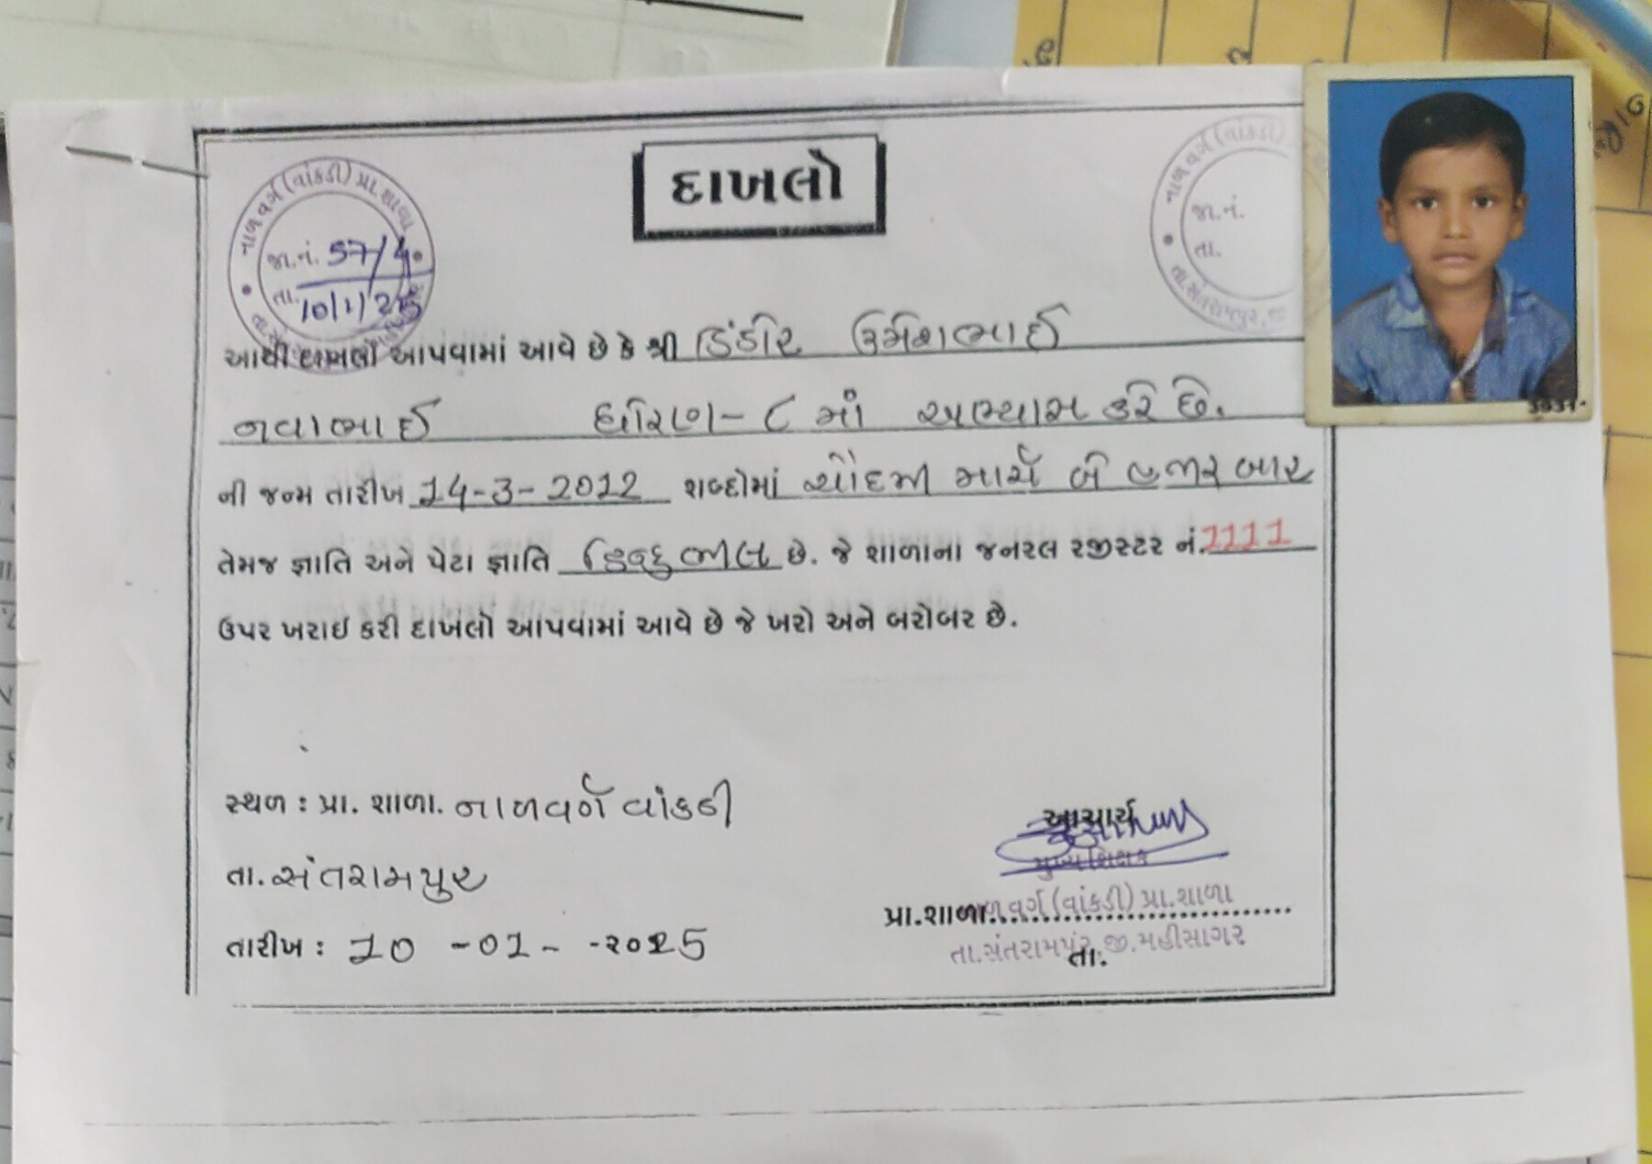 દાખલો
નાળ વર્ગ (વાંકડી) પ્રા. શાળા
જા.નં. 57/4
તા. 10/1/25
નાળ વર્ગ (વાંકડી)
જા.નં.
તા.
તા.સંતરામપુર,
આથી દાખલો આપવામાં આવે છે કે શ્રી ડિંડોર ઉમેશભાઈ
નવાભાઈ ધોરણ - ૮ માં અભ્યાસ કરે છે.
ની જન્મ તારીખ 14-3-2012 શબ્દોમાં ચૌદમી માર્ચ બે હજાર બાર
તેમજ જ્ઞાતિ અને પેટા જ્ઞાતિ હિન્દુ ભીલ છે. જે શાળાના જનરલ રજીસ્ટર નં. 1111
ઉપર ખરાઈ કરી દાખલો આપવામાં આવે છે જે ખરો અને બરોબર છે.
સ્થળ : પ્રા. શાળા. નાળવર્ગ વાંકડી
આચાર્ય
મુખ્ય શિક્ષક
તા. સંતરામપુર
પ્રા.શાળા. નાળ વર્ગ (વાંકડી) પ્રા.શાળા
તારીખ : 10 -01- -૨૦25
તા. તા.સંતરામપુર જી.મહીસાગર